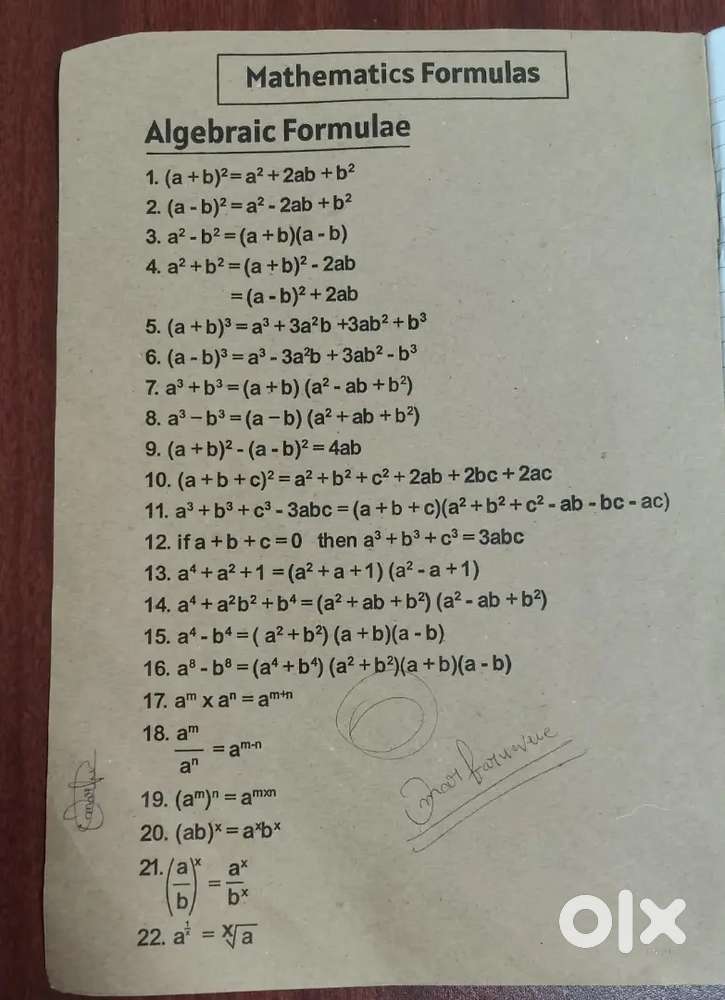 Mathematics Formulas
Algebraic Formulae
1. (a + b)² = a² + 2ab + b²
2. (a - b)² = a² - 2ab + b²
3. a² - b² = (a + b)(a - b)
4. a² + b² = (a + b)² - 2ab
= (a - b)² + 2ab
5. (a + b)³ = a³ + 3a²b +3ab² + b³
6. (a - b)³ = a³ - 3a²b + 3ab² - b³
7. a³ + b³ = (a + b) (a² - ab + b²)
8. a³ – b³ = (a – b) (a² + ab + b²)
9. (a + b)² - (a - b)² = 4ab
10. (a + b + c)² = a² + b² + c² + 2ab + 2bc + 2ac
11. a³ + b³ + c³ - 3abc = (a + b + c)(a² + b² + c² - ab - bc - ac)
12. if a + b + c = 0 then a³ + b³ + c³ = 3abc
13. a⁴ + a² + 1 = (a² + a + 1) (a² - a + 1)
14. a⁴ + a²b² + b⁴ = (a² + ab + b²) (a² - ab + b²)
15. a⁴ - b⁴ = ( a² + b²) (a + b)(a - b)
16. a⁸ - b⁸ = (a⁴ + b⁴) (a² + b²)(a + b)(a - b)
17. aᵐ x aⁿ = aᵐ⁺ⁿ
18. aᵐ/aⁿ = aᵐ⁻ⁿ
19. (aᵐ)ⁿ = aᵐˣⁿ
20. (ab)ˣ = aˣbˣ
21. (a/b)ˣ = aˣ/bˣ
22. a^(1/x) = ˣ√a
olx